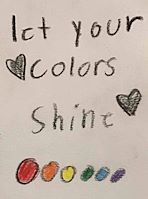 let your
colors
shine